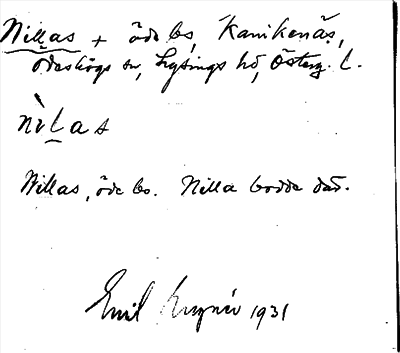 Nillas + öde bs, Kanikenäs,
Ödeshögs sn, Lysings hd, Österg. l.
nìlas
Nillas, öde bs. Nilla bodde där.
Emil 1931